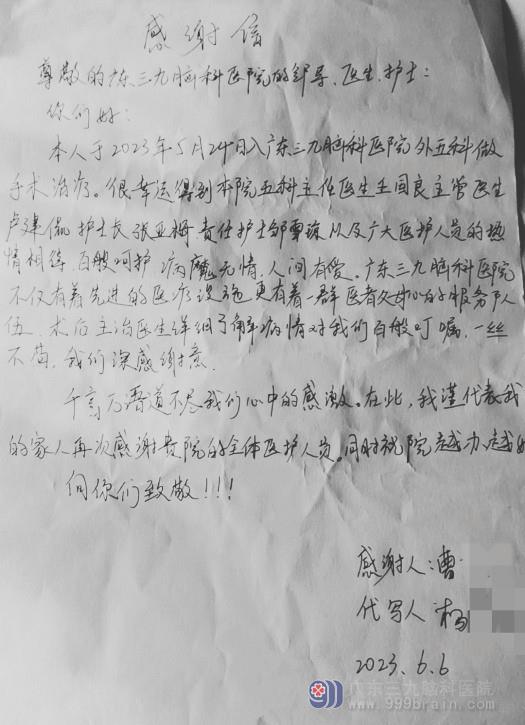 感谢信
尊敬的广东三九脑科医院的领导、医生、护士:
你们好:
本人于2023年5月24日入广东三九脑科医院外五科做
手术治疗。很幸运得到本院五科主任医生王国良主管医生
卢建侃 护士长 张亚梅 责任护士邹 以及广大医护人员的热
情相待 百般呵护 病魔无情、人间有爱。广东三九脑科医院
不仅有着先进的医疗设施更有着一群医者父母心的服务队
伍. 术后主治医生详细了解病情对我们百般叮嘱,一丝
不苟,我们深感谢意.
千言万语道不尽我们心中的感激。在此,我谨代表我
的家人再次感谢贵院的全体医护人员。同时祝院越办越好
向你们致敬!!!
感谢人:曹
代写人 杨
2023.6.6
广东三九脑科医院
www.999brain.com